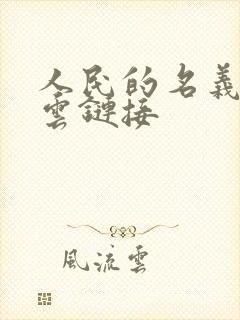 人民的名義
雲鏈接
風流雲